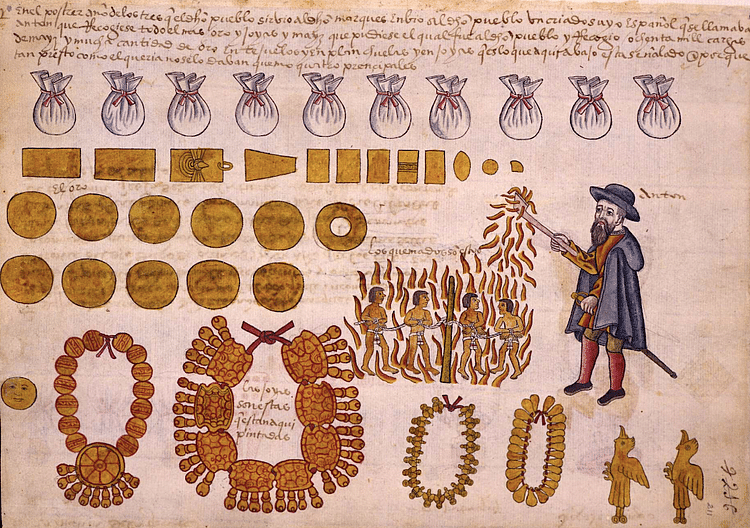 en el postrer año de los tres q̃ el dho pueblo sirvio al dho marques enbio al dho pueblo un criado suyo español q̃ se llamava
anton que Recogiese todo el mas oro y joyas y mayz que pudiese el qual fue al dho pueblo y Recogio ochenta mill cargas
de mayz y mucha cantidad de oro en tejuelos y en planchuelas y en joyas q̃ es lo que aqui abaxo esta señalado porque
tan presto como el queria no se lo daban quemo quatro principales
el oro
anton
los quemados son estos
las joyas
son estas
q̃ estan aqui
pintadas
211